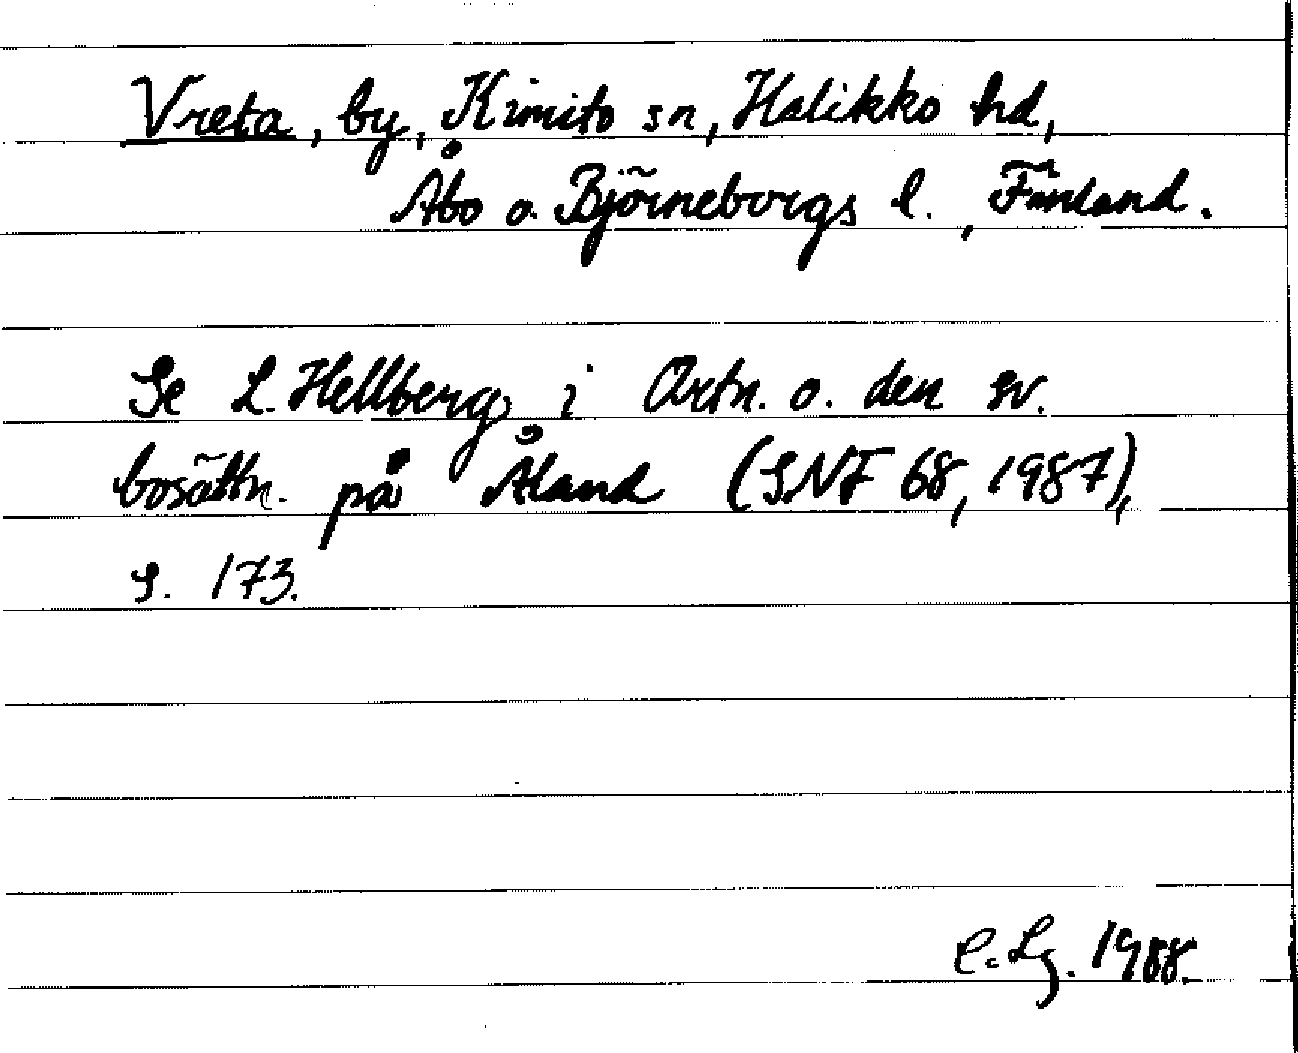 Vreta, by, Kimito sn, Halikko hd,
Åbo o. Björneborgs l., Finland.
Se L. Hellberg i Ortn. o. den sv.
bosättn. på Åland (SNF 68, 1987),
s. 173.
C. Lg. 1988.